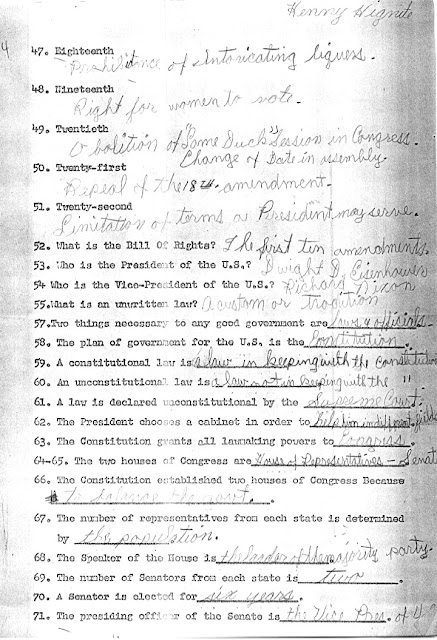 Henry Hignite
4
47. Eighteenth
Prohibitance of Intoricating liquess.
48. Nineteenth
Right for women to vote.
49. Twentieth
Obolition of "Lame Duck" Session in Congress.
Change of Date in assembly.
50. Twenty-first
Repeal of the 18th. amendment.
51. Twenty-second
Limitation of terms a President may serve.
52. What is the Bill of Rights? The first ten amendments.
53. Who is the President of the U.S.? Dwight D. Eisenhower
54 Who is the Vice-President of the U.S.? Richard Nixon
55. What is an unwritten law? A custom or tradition
57. Two things necessary to any good government are laws & officials.
58. The plan of government for the U.S. is the Constitution.
59. A constitutional law is a law in keeping with the Constitution
60. An unconstitutional law is a law not in keeping with the "
61. A law is declared unconstitutional by the Supreme Court.
62. The President chooses a cabinet in order to help him in different fields
63. The Constitution grants all lawmaking powers to Congress.
64-65. The two houses of Congress are House of Representatives - Senate
66. The Constitution established two houses of Congress Because
to balance
67. The number of representatives from each state is determined
by the population.
68. The Speaker of the House is the leader of the majority party.
69. The number of Senators from each state is two.
70. A Senator is elected for six years.
71. The presiding officer of the Senate is the Vice Pres. of U